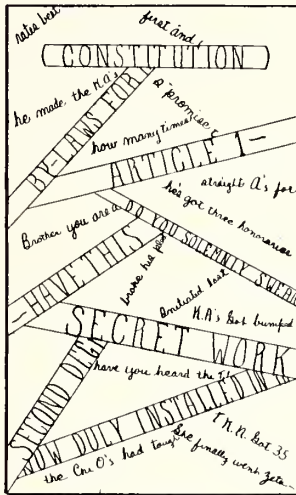 rates best
first and
CONSTITUTION
he made the K.A's
BY-LAWS FOR
a promise,
how many times
ARTICLE 1—
straight A's for
he's got three honoraries
Brother you are a
DO YOU SOLEMNLY SWEAR
—HAVE THIS
broke his
Initiated last
K.A's Got bumped
SECRET WORK
SECOND DEG
have you heard the
NOW DULY INSTALLED IN
Got 35
the Chi O's had tough
She finally went Zeta—